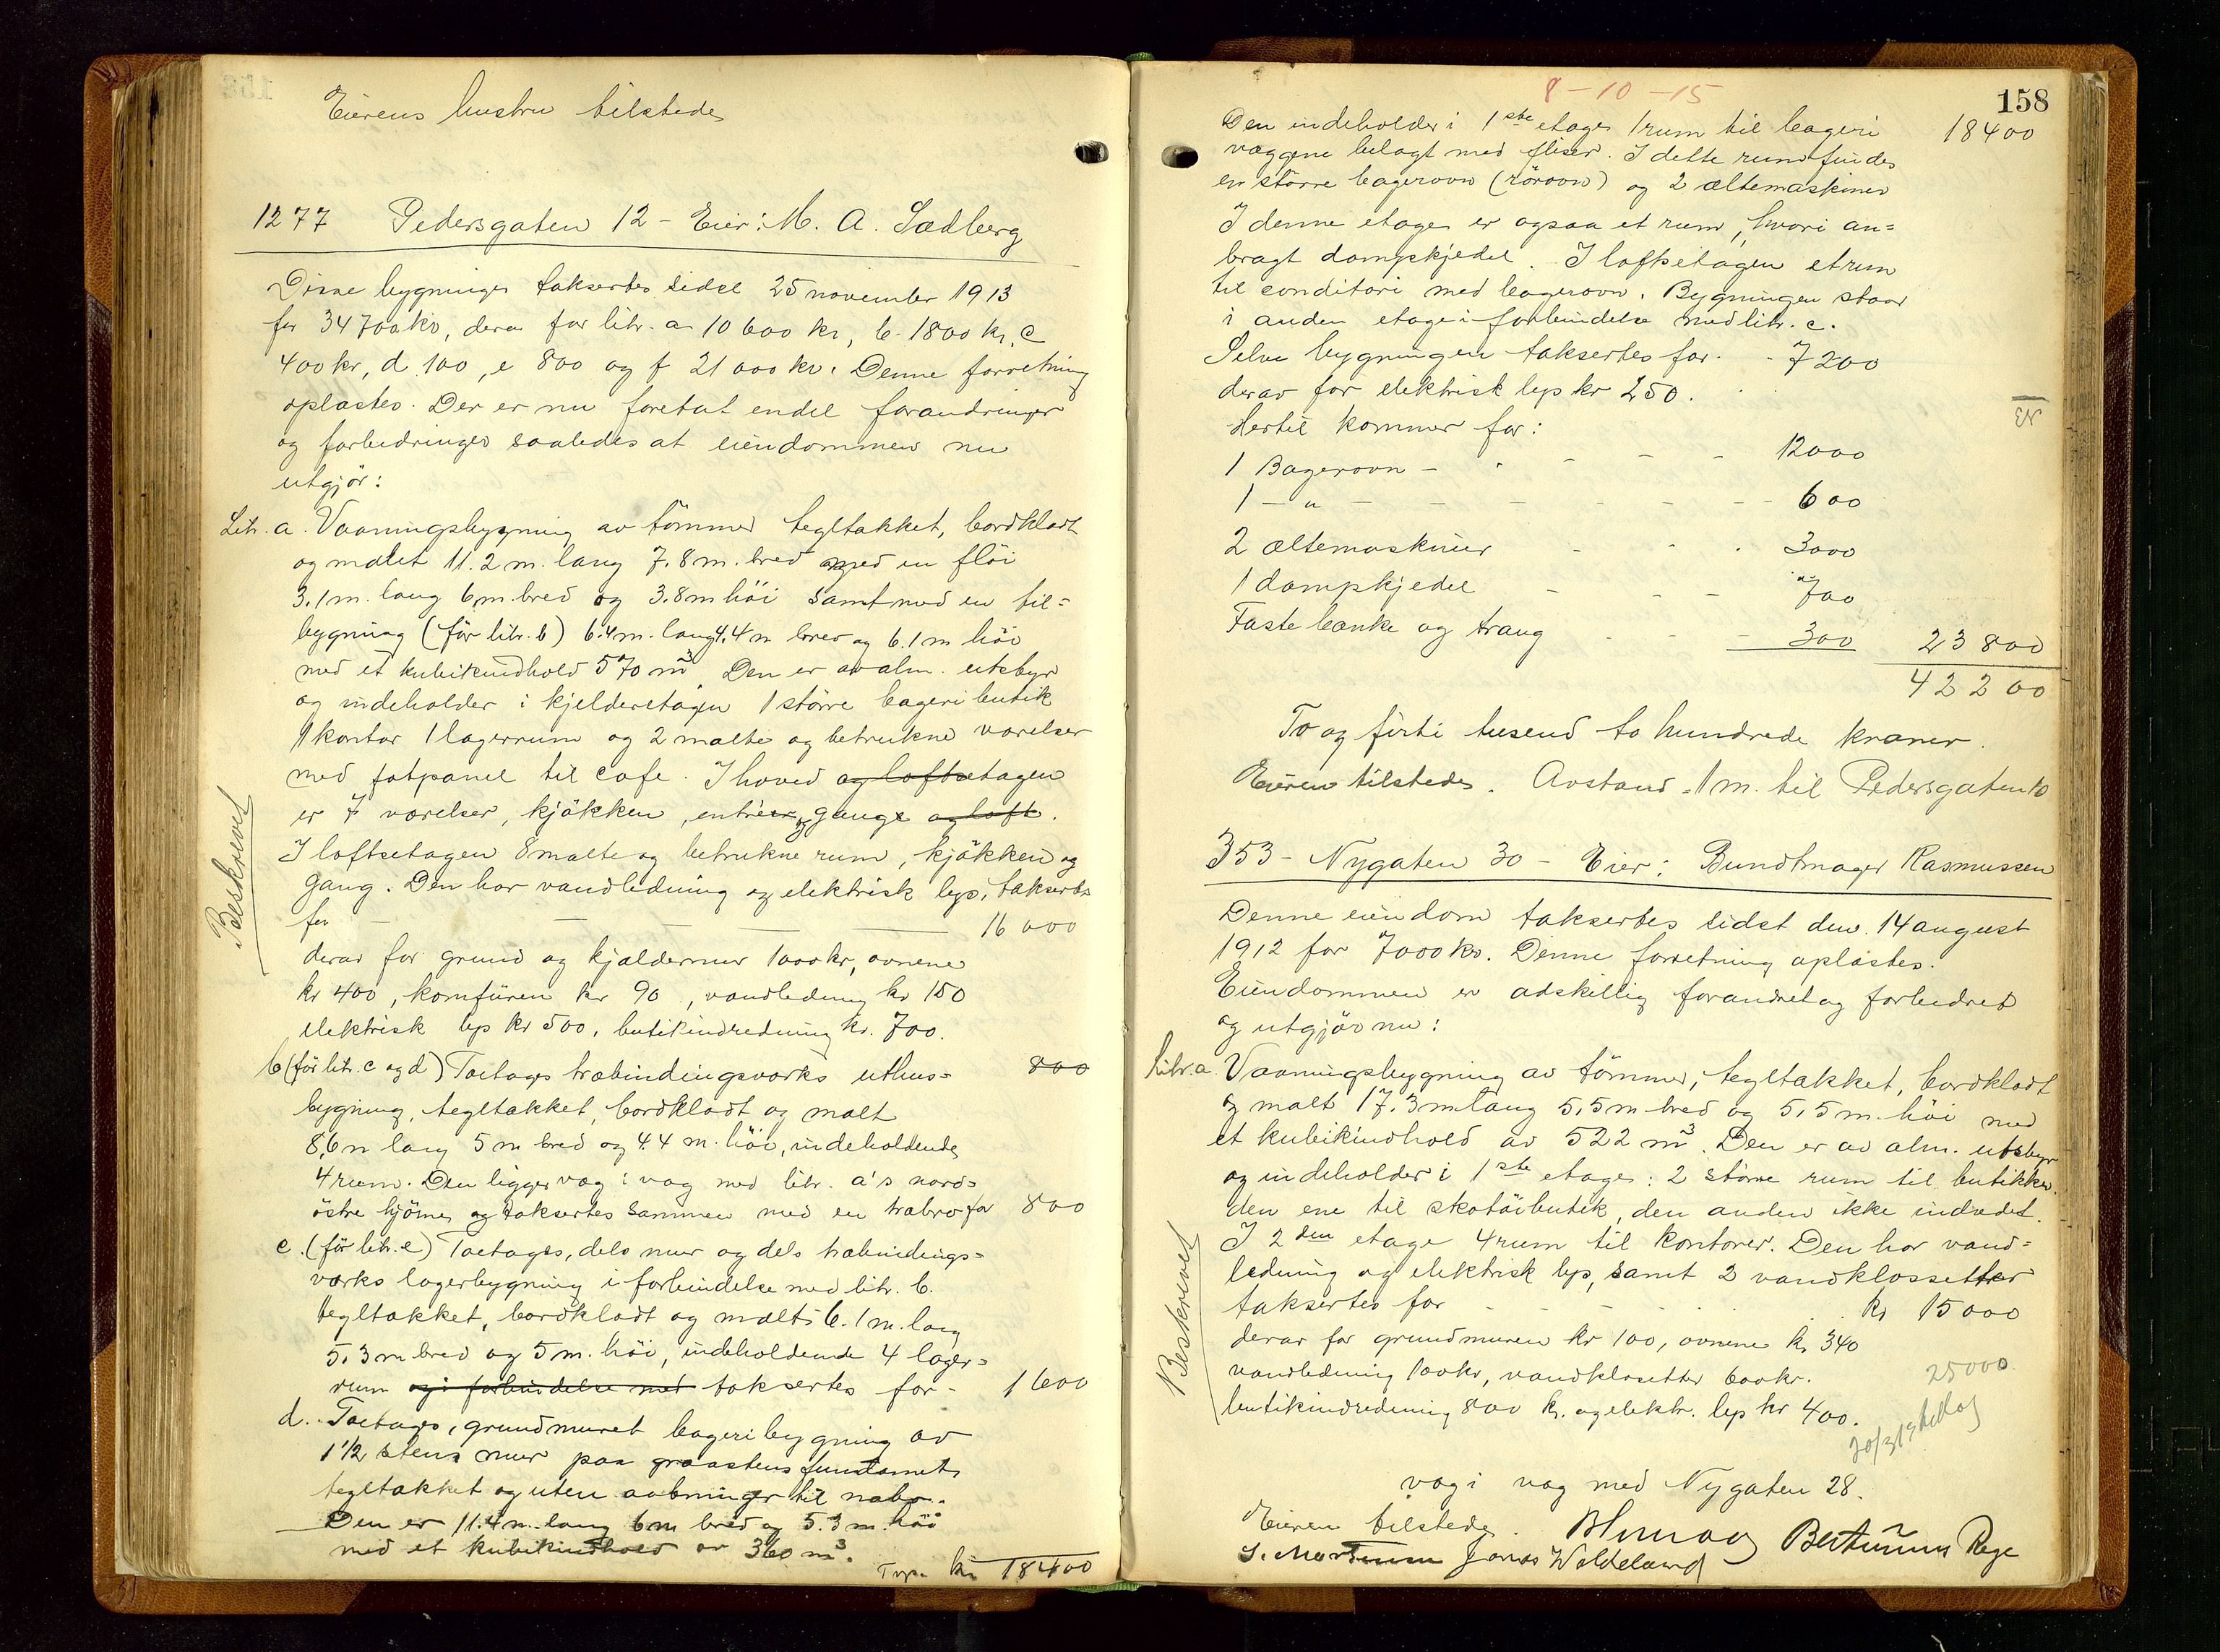 Eierens hustru tilstede
1277 Pedersgaten 12 - Eier: M. A. Sædberg
Disse bygninger taksertes sidst 25 november 1913
for 34700 kr, derav for litr. a 10 600 kr, b. 1800 kr, c
400 kr, d 100, e 800 og f 21 000 kr. Denne forretning
oplæstes. Der er nu foretat endel forandringer
og forbedringer saaledes at eiendommen nu
utgjør:
Litr. a. Vaaningsbygning av tømmer tegltækket, bordklædt
og malet 11.2 m. lang 7.8 m. bred med en fløi
3.1 m. lang 6 m. bred og 3.8 m høi samt med en til=
bygning (før litr. b) 6.4 m. lang 4.4 m bred og 6.1 m høi
med et kubikindhold 570 m³. Den er av alm. utstyr
og indeholder i kjelderetagen 1 større bageributik
1 kontor 1 lagerrum og 2 malte og betrukne værelser
med fotpanel til cafe. I hoved og loftsetagen
er 7 værelser, kjøkken, entreer, og gange og loft.
I loftsetagen 8 malte og betrukne rum, kjøkken og
gang. Den har vandledning og elektrisk lys, taksertes
for — — — — 16 000
derav for grund og kjældermur 1000 kr, ovnene
kr 400, komfüren kr 90, vandledning kr 150
elektrisk lys kr 500, butikindredning kr. 700.
Beskrevet
b (før litr. c og d) Toetages træbindingsværks uthus= 800
bygning, tegltækket, bordklædt og malt
8,6 m lang 5 m bred og 4.4 m. høi, indeholdende
4 rum. Den ligger væg i væg med litr. a's nord=
østre hjørne og taksertes sammen med en træbro for 800
c. (før litr. e) Toetages, dels mur og dels træbindings=
værks lagerbygning i forbindelse med litr. b.
tegltækket, bordklædt og malt. 6.1 m. lang
5.3 m bred og 5 m. høi, indeholdende 4 lager=
rum og i forbindelse med taksertes for - 1600
d. Toetages, grundmuret bageribygning av
1 1/2 stens mur paa graastens fundament
tegltækket og uten aabninger til nabo.
Den er 11.4 m. lang 6 m bred og 5.3 m. høi
med et kubikindhold av 360 m³.
Trsp. kr 18400
8-10-15
158
Den indeholder i 1ste etage 1 rum til bageri 18400
væggene belagt med fliser. I dette rum findes
en større bagerovn (rørovn) og 2 æltemaskiner
I denne etage er ogsaa et rum, hvori an=
bragt dampkjedel. I loftsetagen et rum
til conditori med bagerovn. Bygningen staar
i anden etage i forbindelse med litr. c.
Selve bygningen taksertes for - - 7200
derav for elektrisk lys kr 250.
Hertil kommer for:
1 Bagerovn - - - - - 12000
1 — " — - - - - - 600
2 æltemaskiner - - - 3000
1 dampkjedel - - - 700
Faste bænke og traug - - - 300 23800
42200
To og firti tusend to hundrede kroner.
Eieren tilstede. Avstand 1 m. til Pedersgaten 10
353 - Nygaten 30 - Eier: Bundtmager Rasmussen
Denne eiendom taksertes sidst den 14 august
1912 for 7000 kr. Denne forretning oplæstes.
Eiendommen er adskillig forandret og forbedret
og utgjør nu:
Litr. a. Vaaningsbygning av tømmer, tegltækket, bordklædt
og malt 17.3 m lang 5,5 m bred og 5,5 m. høi med
et kubikindhold av 522 m³. Den er av alm. utstyr
og indeholder i 1ste etage: 2 større rum til butikker.
den ene til skotøibutik, den anden ikke indredet.
I 2den etage 4 rum til kontorer. Den har vand=
ledning og elektrisk lys, samt 2 vandklossetter
taksertes for - - - - kr 15000
derav for grundmuren kr 100, ovnene kr 340
vandledning 100 kr, vandklosetter 600 kr. 25000
butikindredning 800 kr. og elektr. lys kr 400.
Beskrevet
væg i væg med Nygaten 28.
Eieren tilstede.
S. Martinsen Jonas Waldeland